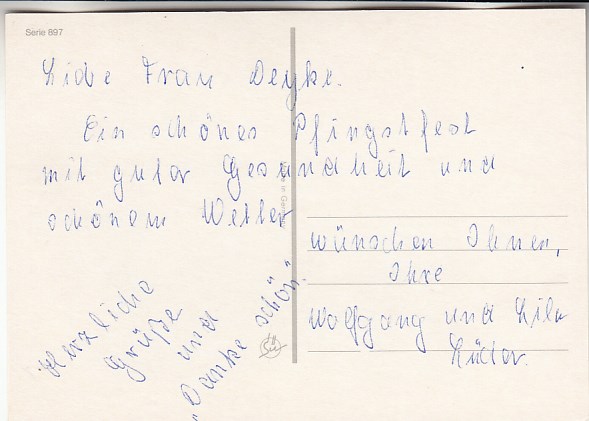 Serie 897
Liebe Frau Deyke.
Ein schönes Pfingstfest
mit guter Gesundheit und
schönem Wetter
wünschen Ihnen,
Ihre
Wolfgang und
Herzliche
Grüße
und
"Danke schön."